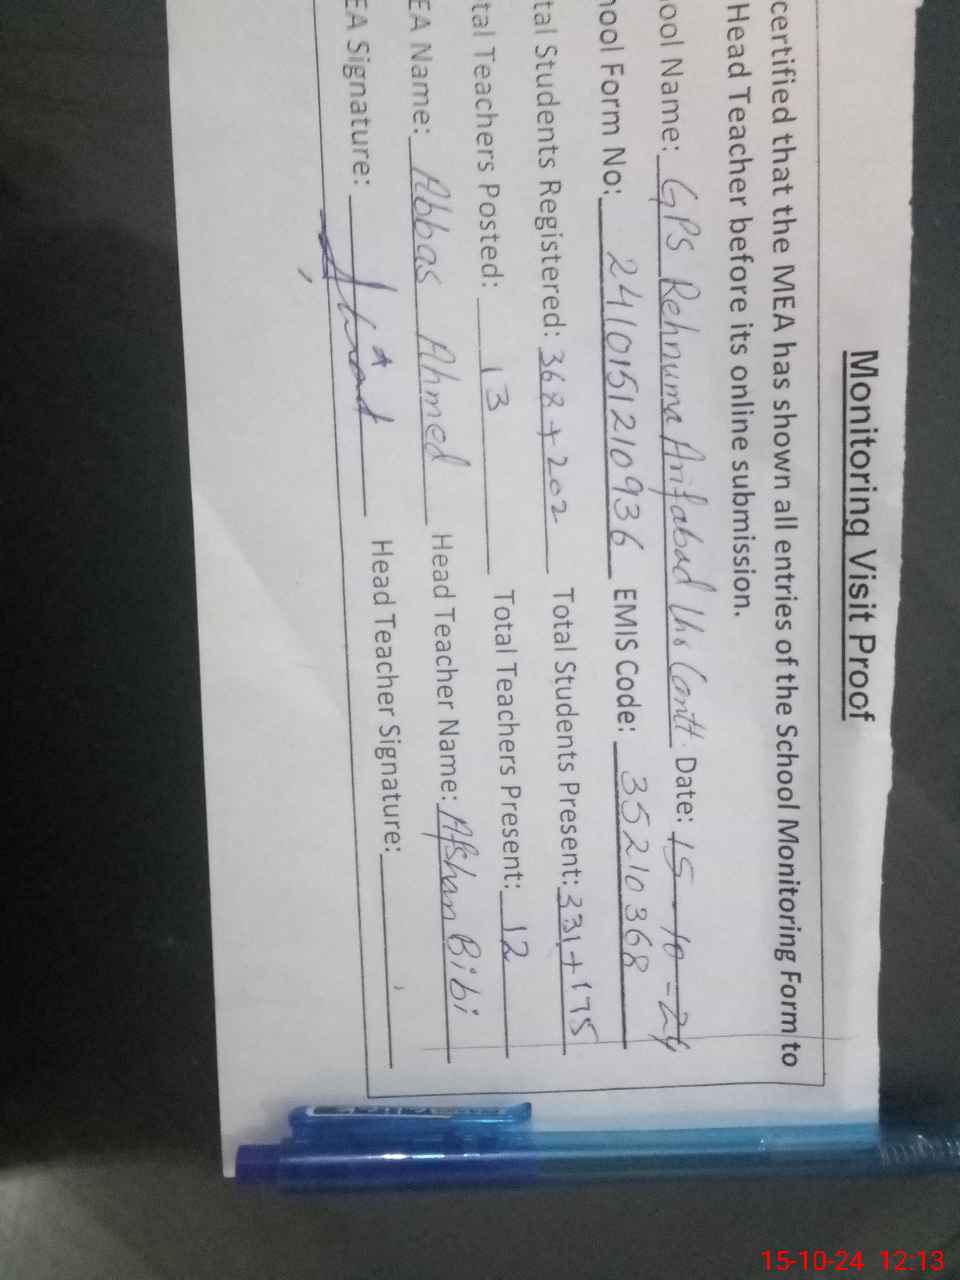 Monitoring Visit Proof
certified that the MEA has shown all entries of the School Monitoring Form to
Head Teacher before its online submission.
ool Name: GPS Rehnuma Arifabad Lhr Cantt. Date: 15-10-24
ool Form No: 2410151210936 EMIS Code: 35210368
tal Students Registered: 368+202 Total Students Present: 331+175
tal Teachers Posted: 13 Total Teachers Present: 12
EA Name: Abbas Ahmed Head Teacher Name: Afshan Bibi
EA Signature: Head Teacher Signature:
15-10-24 12:13